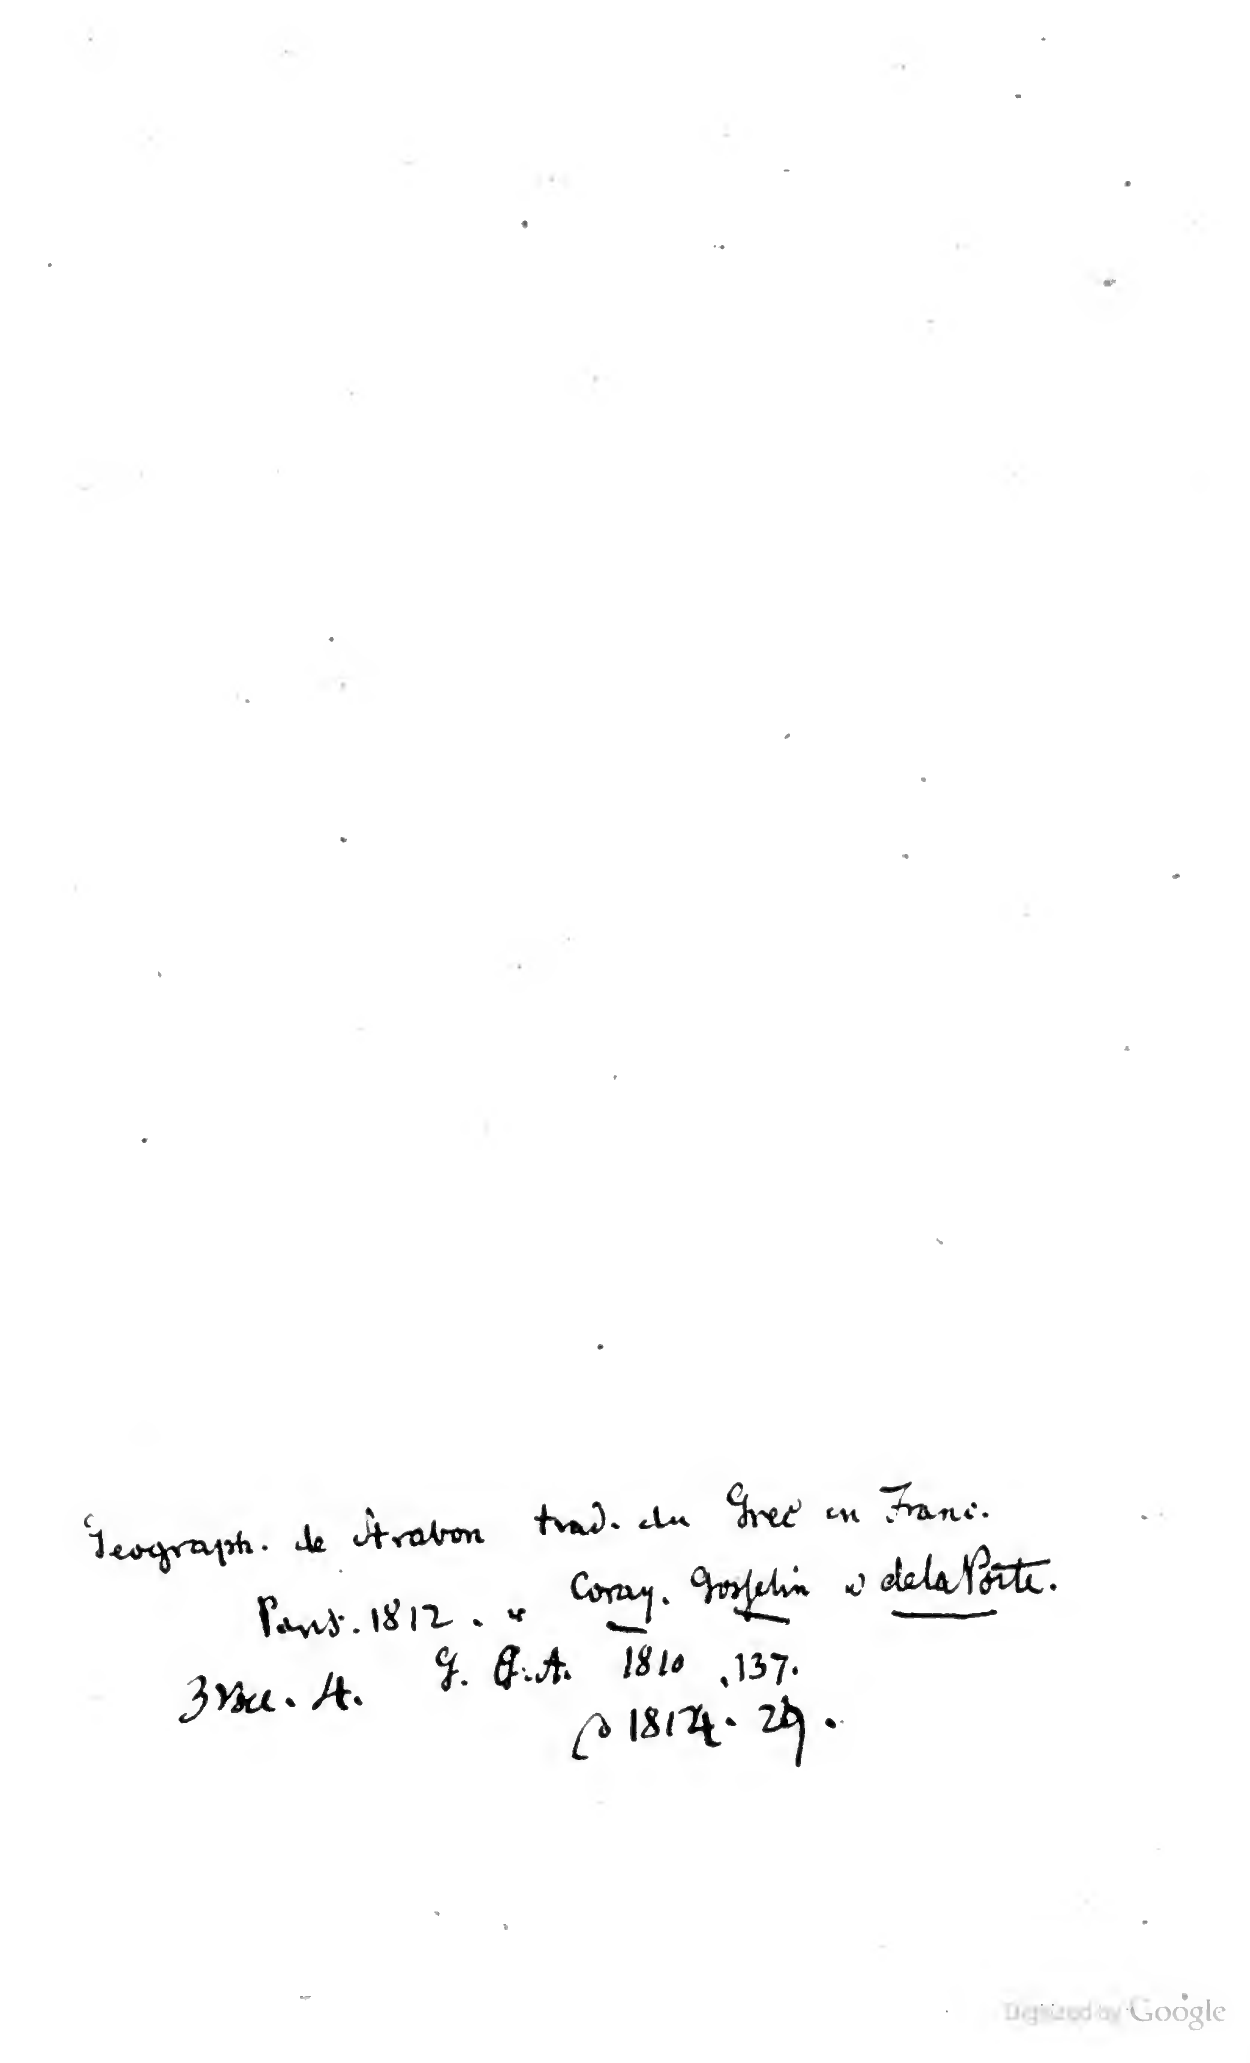 Geograph. de Strabon trad. du Grec en Franc.
Paris. 1812. Coray. Gosselin de la Porte.
3 Voll. 4. G. G. A. 1810, 137.
1814. 29.
Digitized by Google